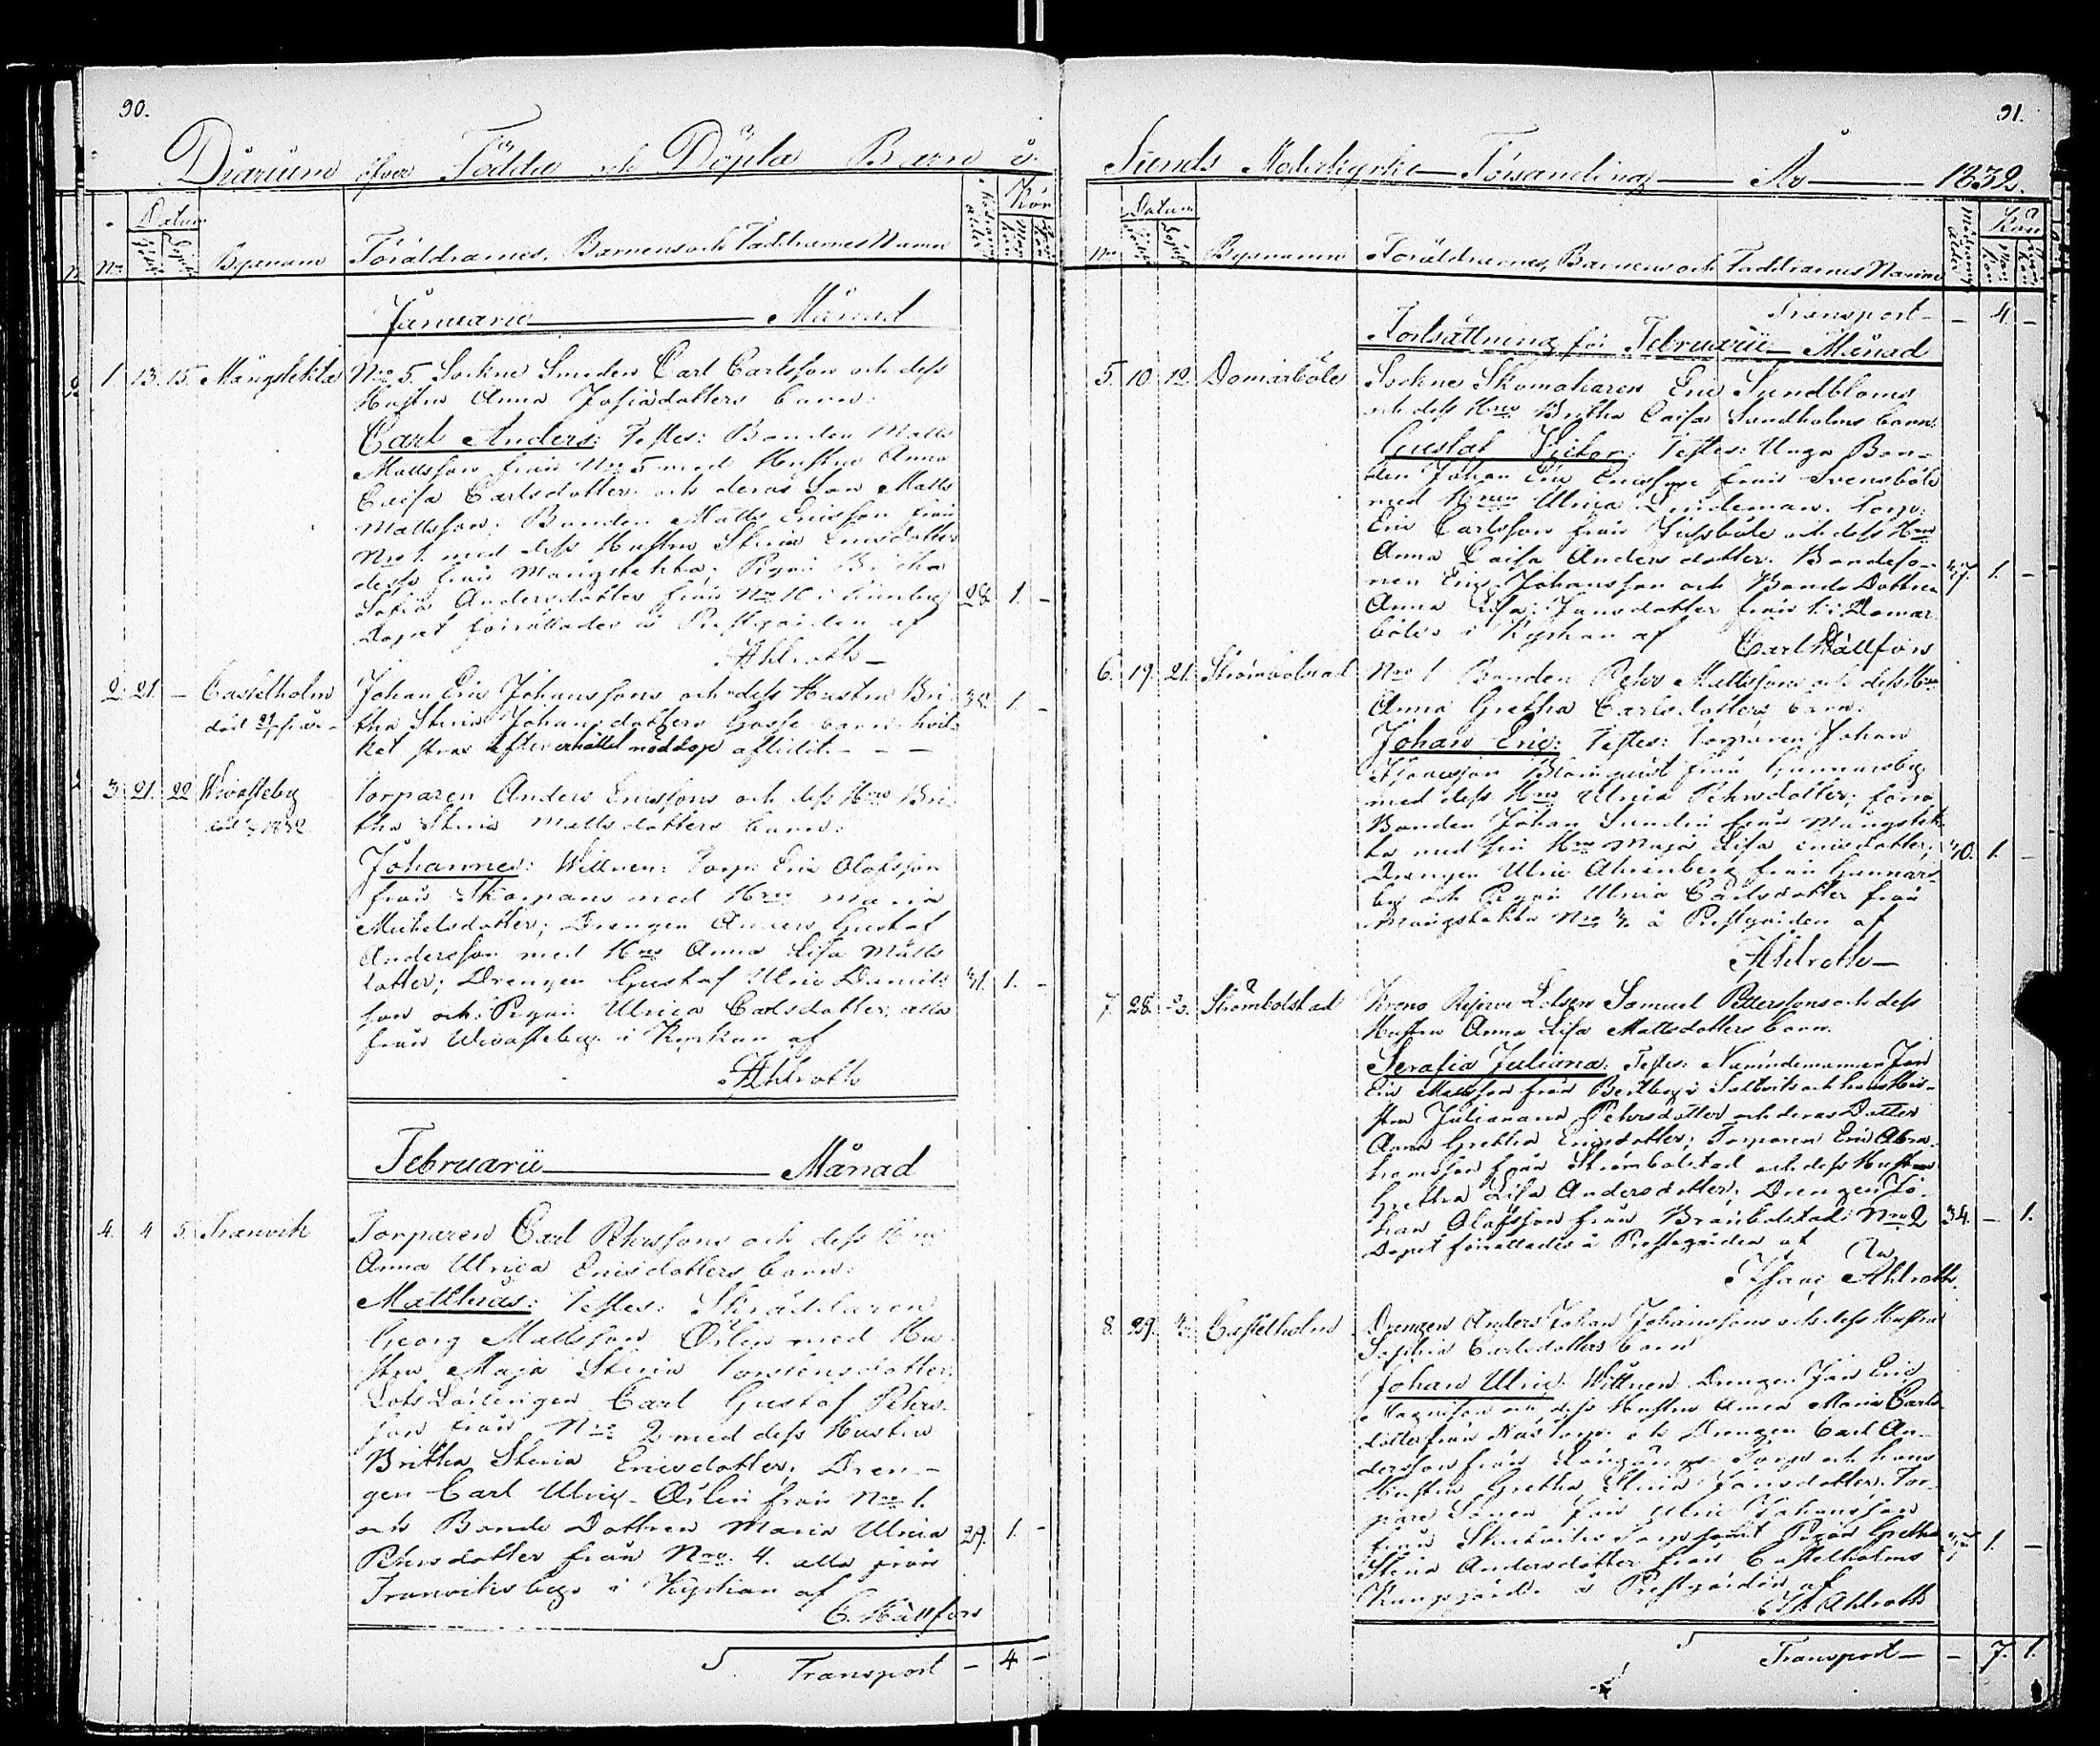 90.
Diarium öfver Födde och Döpta Barn i
N:o Datum födde döpte Bynamn Föräldrarnes, Barnens och Faddrarnes Namn Modrens ålder Kön Man kön Qvin kön
Januarii Månad
1. 13. 15. Mångstekta N:o 5. Sockne Smeden Carl Carlsson och dess
Hustru Anna Josiædotters barn:
Carl Anders: Testes: Bonden Matts
Mattsson från N:o 5 med Hustru Anna
Caisa Carlsdotter och deras Son Matts
Mattsson; Bonden Matts Ericsson från
N:o 1. med dess Hustru Stina Ericsdotter
dess från Mångstekta; Pigan Britha
Sofia Andersdotter från N:o 10 i 28. 1. -
Dopet förrättades å Prestgården af
Ahlroth
2. 21. - Castelholm Johan Eric Johanssons och dess Hustru Bri- 32. 1. -
död tha Stina Johansdotters Gosse barn hvil-
ket strax efter erhållet nöddop aflidit. - - -
3. 21. 22 Wivasteby Torparen Anders Ericssons och dess H:ru Bri-
död 1832 tha Stina Mattsdotters barn:
Johannes: Wittnen: Torp: Eric Olofsson
från Skarpans med H:ru Maria
Michelsdotter; Drengen Anders Gustaf
Andersson med H:ru Anna Lisa Matts
dotter; Drengen Gustaf Ulric Daniels 31. 1. -
son och Pigan Ulrica Carlsdotter, alla
från Wivasteby i Kyrkan af
Ahlroth
Februarii Månad
4. 4 5. Tranvik Torparen Carl Pehrssons och dess H:ru
Anna Ulrica Ericsdotters barn:
Matthias: Testes: Skräddaren
Georg Mattsson Öslin med Hu-
stru Maja Stina Torstensdotter;
Lots Lärlingen Carl Gustaf Pehrs-
son från N:o 2 med dess Hustru
Britha Stina Ericsdotter; Dren-
gen Carl Ulric Öslin från N:o 1.
och Bonde Dottren Maria Ulrica 29. 1. -
Pehrsdotter från N:o 4. alla från
Tranviks by i Kyrkan af
C. Hällfors
Transport - 4 -
91.
Sunds Moderkyrko Församling År 1832.
N:o Datum födde döpte Bynamnen Föräldrarnes, Barnens och Faddrarnes Namn Modrens ålder Kön Man kön Qvin kön
Transport - - 4 -
Fortsättning för Februarii Månad
5. 10. 12. Domarböle Sockne Skomakaren Eric Sundbloms
och dess H:rus Britha Caisa Sundholms barn:
Gustaf Victor: Testes: Unga Bon-
den Johan Eric Ericsson från Svensböle
med H:run Ulrica Lindeman. Torp:
Eric Carlsson från Jussböle och dess H:ru
Anna Caisa Anders dotter. Bondeso-
nen Eric Johansson och Bonde Dottren 1. -
Anna Lisa Jansdotter från 1. i Domar-
böle i Kyrkan af
Carl Hällfors
6. 19. 21. Strömbolstad N:o 1 Bonden Pehr Mattssons och dess H:ru
Anna Gretha Carlsdotters barn:
Johan Eric: Testes: Torparen Johan
Blomqvist från Gunnarsby
med dess H:ru Ulrica Pehrsdotter; förra
Bonden Johan Sundin från Mångstek-
ta med sin H:ru Maja Lisa Ericsdotter; 40. 1. -
Drengen Ulric Ahrenberg från Gunnars-
by och Pigan Ulrica Carlsdotter från
Mångstekta N:o å Prestgården af
Ahlroth
7. 28. Strömbolstad Krono Reserve Lotsen Samuel Petterssons och dess
Hustru Anna Lisa Mattsdotters barn.
Serafia Juliana: Testes: Nämndemannen Jan
Eric Mattsson från Bertby i Saltvik och hans Hu-
stru Juliana Pehrsdotter och deras Dotter
Anna Gretha Ericsdotter; Torparen Eric Abra-
hamsson från Strömbolstad och dess Hustru
Gretha Lisa Andersdotter, Drengen Jo-
han Olofsson från Bränbolstad N:o 2 34. - 1.
Dopet förrättades å Prestgården af
Isaac Ahlroth
8. 29. Castelholm Drengen Anders Johan Johanssons och dess Hustru
Sophia Carlsdotters barn
Johan Ulric: Wittnen Drengen Jan Eric
och dess Hustru Anna Maria Carls
dotter från Näs torp och Drengen Carl An-
dersson från torp och hans
Hustru Gretha Stina Jansdotter. Tor-
pare Sonen Jan Ulric Johansson
från torp samt Pigan Gretha 1. -
Stina Andersdotter från Castelholms
Kungsgård. å Prestgården af
Is: Ahlroth
Transport - - 7. 1.